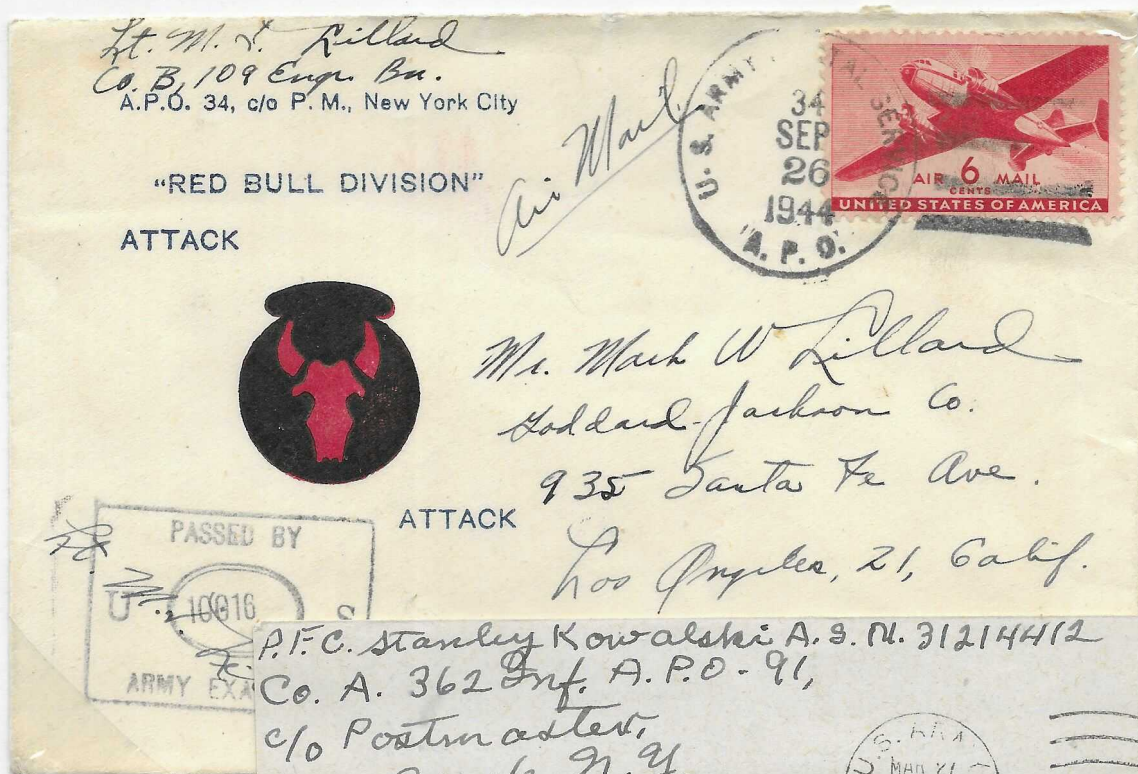 Lt. M. L. Lillard
Co. B, 109 Engr. Bn.
A.P.O. 34, c/o P. M., New York City
"RED BULL DIVISION"
ATTACK
Air Mail
U. S. ARMY POSTAL SERVICE
34
SEP
26
1944
A. P. O.
AIR 6 MAIL
CENTS
UNITED STATES OF AMERICA
Mr. Mark W Lillard
Goddard-Jackson Co.
935 Santa Fe Ave.
Los Angeles, 21, Calif.
ATTACK
PASSED BY
U S
ARMY EXA
P.F.C. Stanley Kowalski A.S.N. 31214412
Co. A. 362 Inf. A.P.O-91,
c/o Postmaster,
N.Y
U.S. ARM
MAR 21